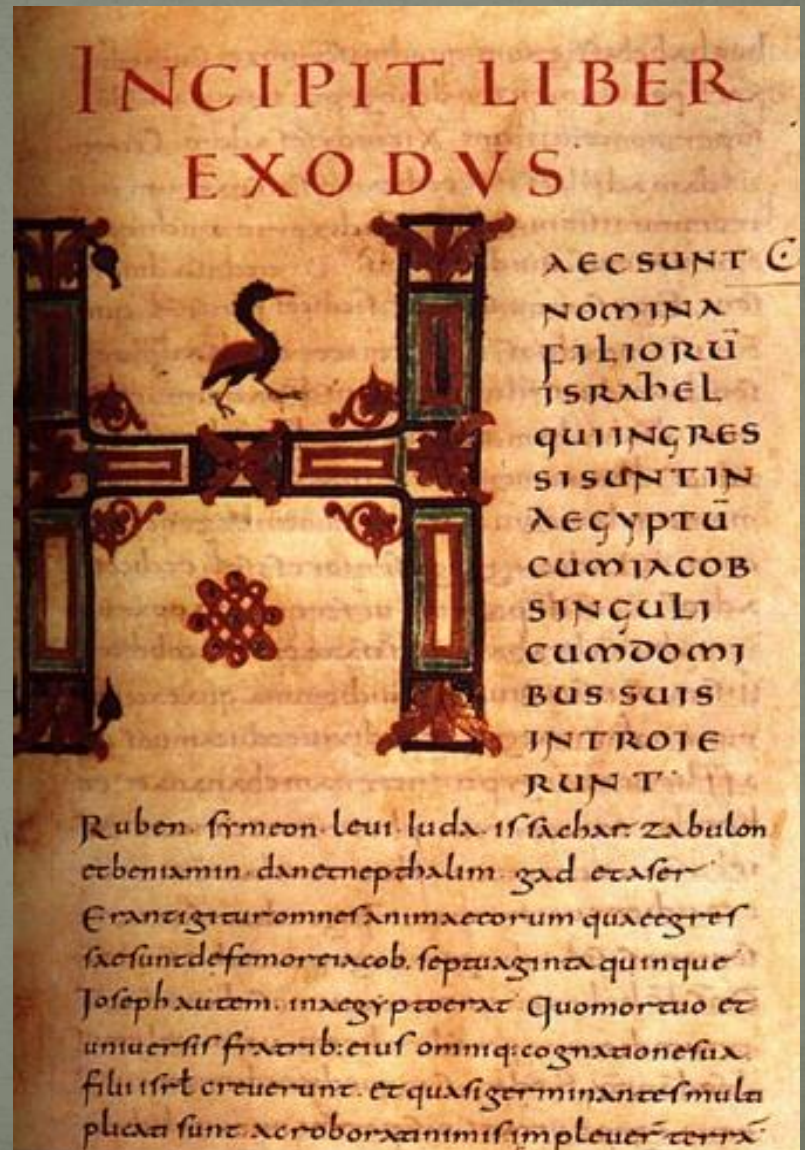 INCIPIT LIBER
EXODVS
H
AEC SUNT
NOMINA
FILIORŪ
ISRAhEL
QUIINGRES
SISUNTIN
AEGYPTŪ
CUMIACOB
SINGULI
CUMDOMI
BUS SUIS
INTROIE
RUNT·
Ruben· symeon· leui· Iuda· issachar· zabulon
etbeniamin· danetnepthalim· gad etaser·
Erantigituromnesanimaeeorum quaeegres
saesuntdefemoreiacob. septuaginta quinque
Ioseph autem· inaegyptoerat Quomortuo et
uniuersis fratrib: eius omniq: cognationesua·
filii isrł creuerunt· etquasigerminantesmulti
plicati sunt· acroboratinimisimpleuer̄ terrā